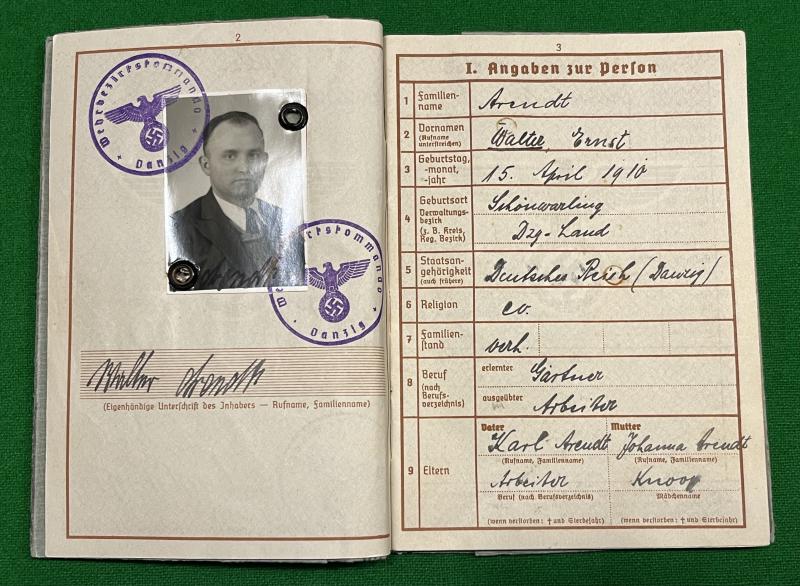 2
Wehrbezirkskommando
Danzig
Wehrbezirkskommando
Danzig
Walter Arendt
(Eigenhändige Unterschrift des Inhabers — Rufname, Familienname)
3
I. Angaben zur Person
1 Familien-
name
Arendt
2 Vornamen
(Rufname
unterstreichen)
Walter, Ernst
3 Geburtstag,
-monat,
-jahr
15. April 1910
4 Geburtsort
Verwaltungs-
bezirk
(z. B. Kreis,
Reg. Bezirk)
Schönwarling
Dzg-Land
5 Staatsan-
gehörigkeit
(auch frühere)
Deutsches Reich (Danzig)
6 Religion
ev.
7 Familien-
stand
verh.
8 Beruf
(nach
Berufs-
verzeichnis)
erlernter
Gärtner
ausgeübter
Arbeiter
9 Eltern
Vater
Karl Arendt
(Rufname, Familienname)
Arbeiter
Beruf (nach Berufsverzeichnis)
(wenn verstorben: † und Sterbejahr)
Mutter
Johanna Arendt
(Rufname, Familienname)
Knoop
Mädchenname
(wenn verstorben: † und Sterbejahr)